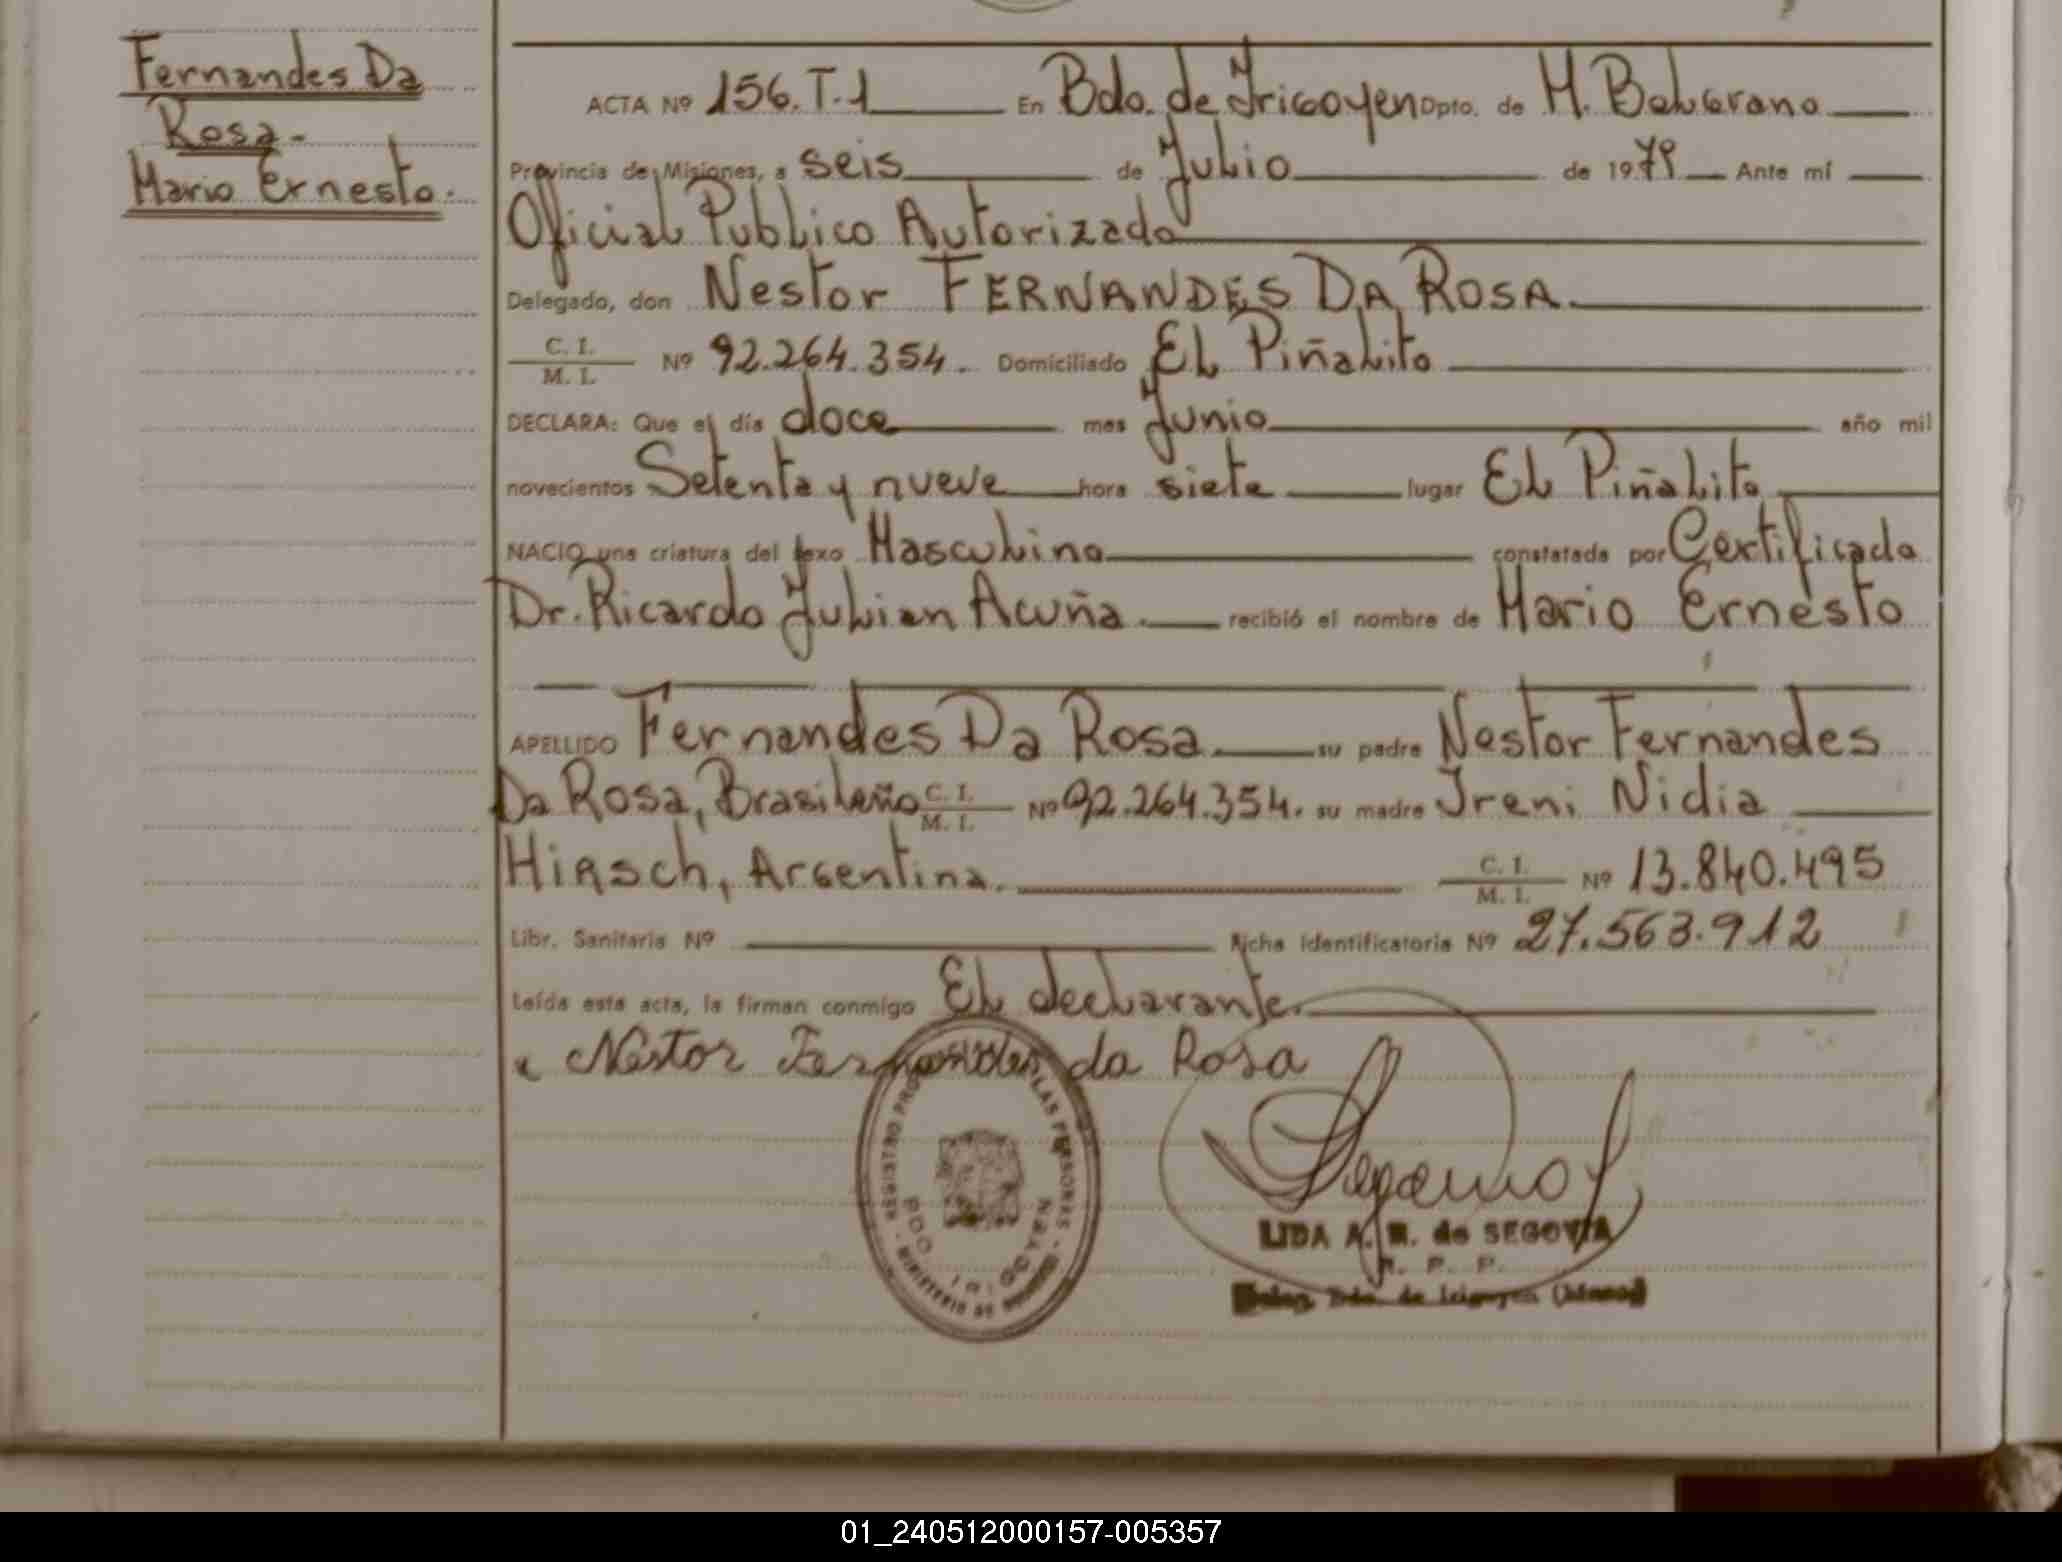 Fernandes Da
Rosa-
Mario Ernesto.
ACTA Nº 156.T.1 En Bdo. de Irigoyen Dpto. de M. Belgrano
Provincia de Misiones, a seis de Julio de 1979 Ante mí
Oficial Publico Autorizado
Delegado, don Nestor FERNANDES DA ROSA.
C. I. / M. I. Nº 92.264.354. Domiciliado El Piñalito
DECLARA: Que el día doce mes Junio año mil
novecientos Setenta y nueve hora siete lugar El Piñalito
NACIO una criatura del sexo Masculino constatada por Certificado
Dr. Ricardo Julian Acuña. recibió el nombre de Mario Ernesto
APELLIDO Fernandes Da Rosa. su padre Nestor Fernandes
Da Rosa, Brasileño C. I. / M. I. Nº 92.264.354. su madre Ireni Nidia
Hirsch, Argentina. C. I. / M. I. Nº 13.840.495
Libr. Sanitaria Nº Ficha Identificatoria Nº 27.563.912
Leída esta acta, la firman conmigo El declarante.
Nestor Fernandes da Rosa
REGISTRO PROV LAS PERSONAS - MINISTERIO DE
BDO. IRIGOYEN
LIDA A. M. de SEGOVIA
Bdo. de Irigoyen
01_240512000157-005357